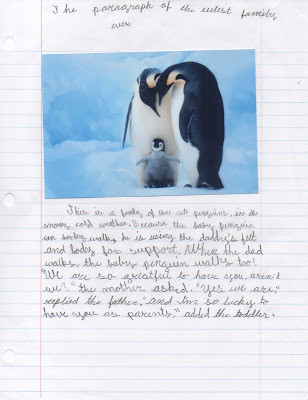 The paragraph of the cutest family
ever
This is a family of three cute penguins, in the
snowy cold weather. Because the baby penguin
can barley walk, he is using the daddy's felt
and body for support. When the dad
walks the baby penguin walks too!
"We are so greatful to have you, aren't
we?" the mother asked. "Yes we are,"
replied the father. "and I'm so lucky to
have you as parents." added the toddler.